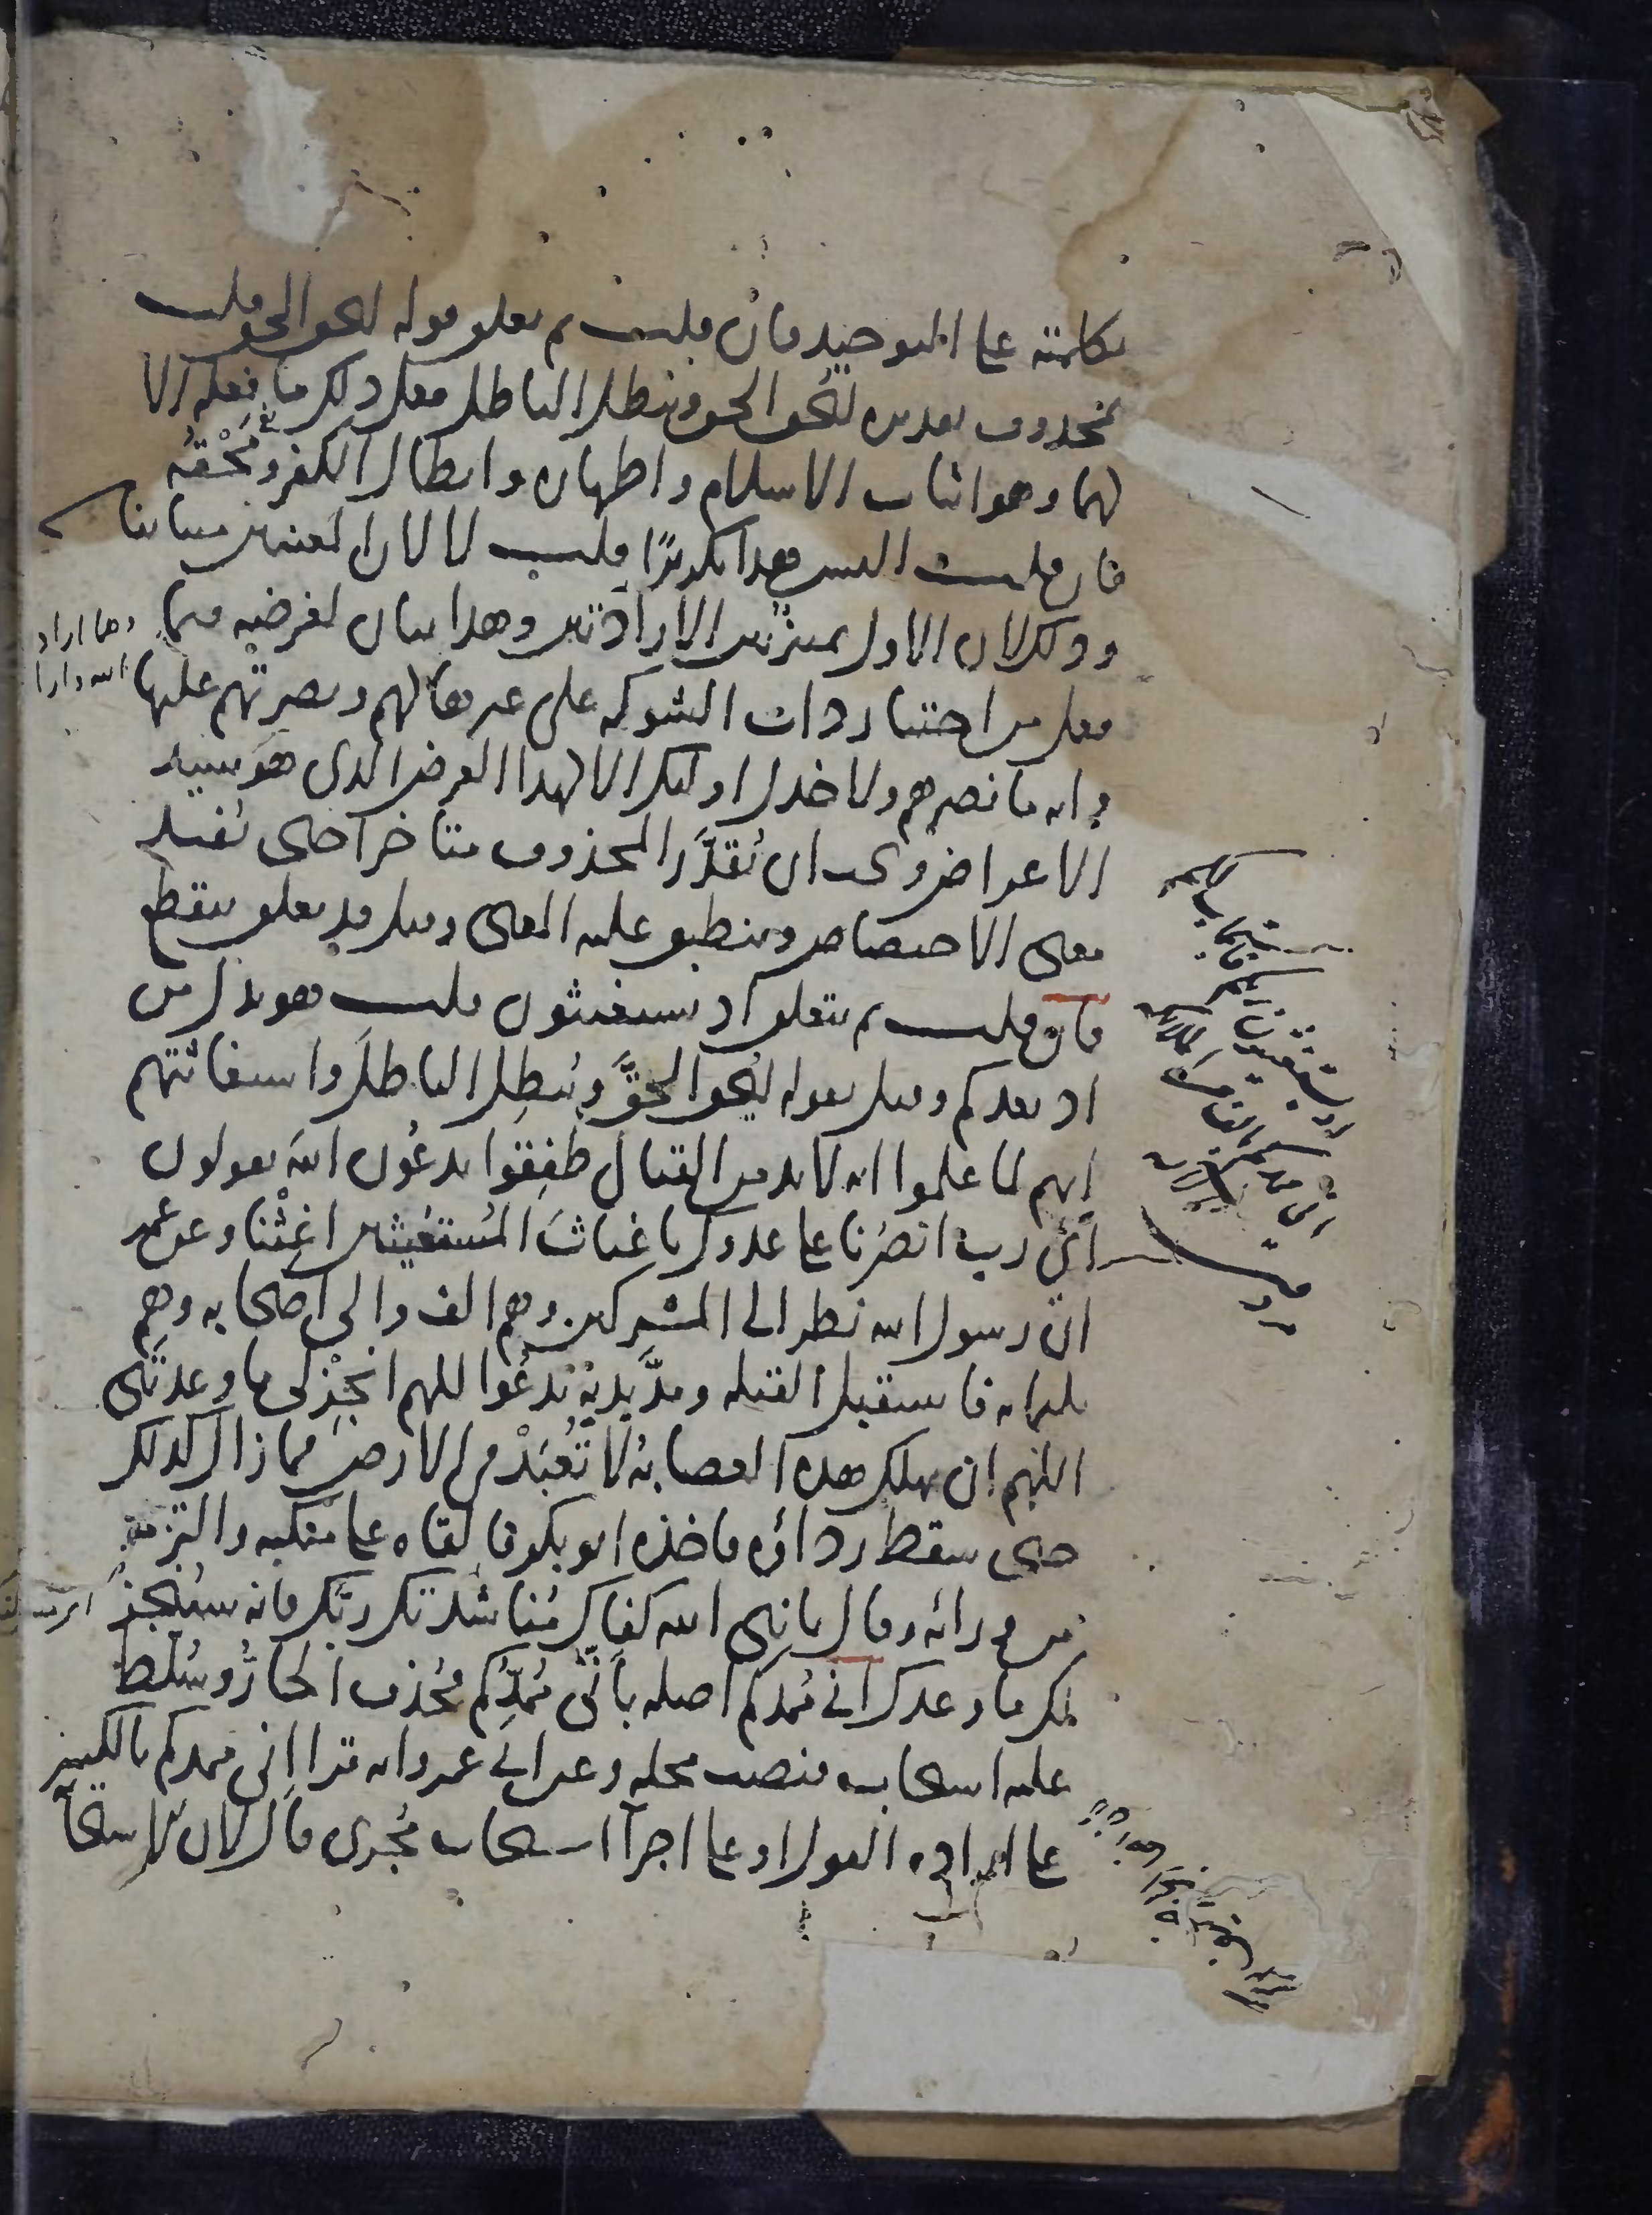 بكلمته على التوحيد فان قلت بم يتعلق قوله ليحق الحق قلت
بمحذوف تقديره ليحق الحق ويبطل الباطل فعل ذلك ما فعله الا
لهما وهو اثبات الاسلام واظهاره وابطال الكفر ومحقه
فان قلت اليس هذا تكريرًا قلت لا لان المعنيين متباينان
وذلك لان الاول تمييز بين الارادتين وهذا بيان لغرضه فيما
فعل من اختيار ذات الشوكة على غيرها لهم ونصرتهم عليها
وانه ما نصرهم ولا خذل اولئك الا لهذا الغرض الذى هو سيد
الاغراض ويجب ان يُقدَّر المحذوف متاخرا حتى يفيد
معنى الاختصاص وينطبق عليه المعنى وقيل قد يعلق بيقطع
فان قلت بم يتعلق اذ تستغيثون قلت هو بدل من
اذ يعدكم وقيل بقوله ليُحق الحقَّ ويُبطِل الباطلَ واستغاثتهم
انهم لما علموا انه لا بد من القتال طفِقوا يدعُون الله يقولون
أي رب انصُرنا على عدوك يا غياثَ المُستغيثين اغِثْنا وعن عمر
ان رسول الله نظر الى المشركين وهم الف والى اصحابه وهم
ثلثمائة فاستقبل القبلة ومدَّ يديه يدعُوا اللهم انجِزْ لى ما وعدتَنى
اللهم ان تهلك هذه العصابةُ لا تُعبَدْ في الارض فما زال كذلك
حتى سقط رداؤه فاخذه ابو بكر فالقاه على منكبه والتزمه
من ورائه وقال يا نبى الله كفاك مُناشدتك ربّك فانه سيُنجز
لك ما وعدك انى مُمدكم اصله بأنّى مُمدّكم فحُذف الجارُ وسُلط
عليه استجاب فنصب محله وعن ابي عمرو انه قرا إنى ممدكم بالكسر
على ارادة القول او على اجرآ استجاب مُجرى قال لان الاستجا
وهما اراد
الله وارا
اذ تستغيثون ربكم فاستجاب لكم
انى ممدكم بالف من الملائكة
مردفين